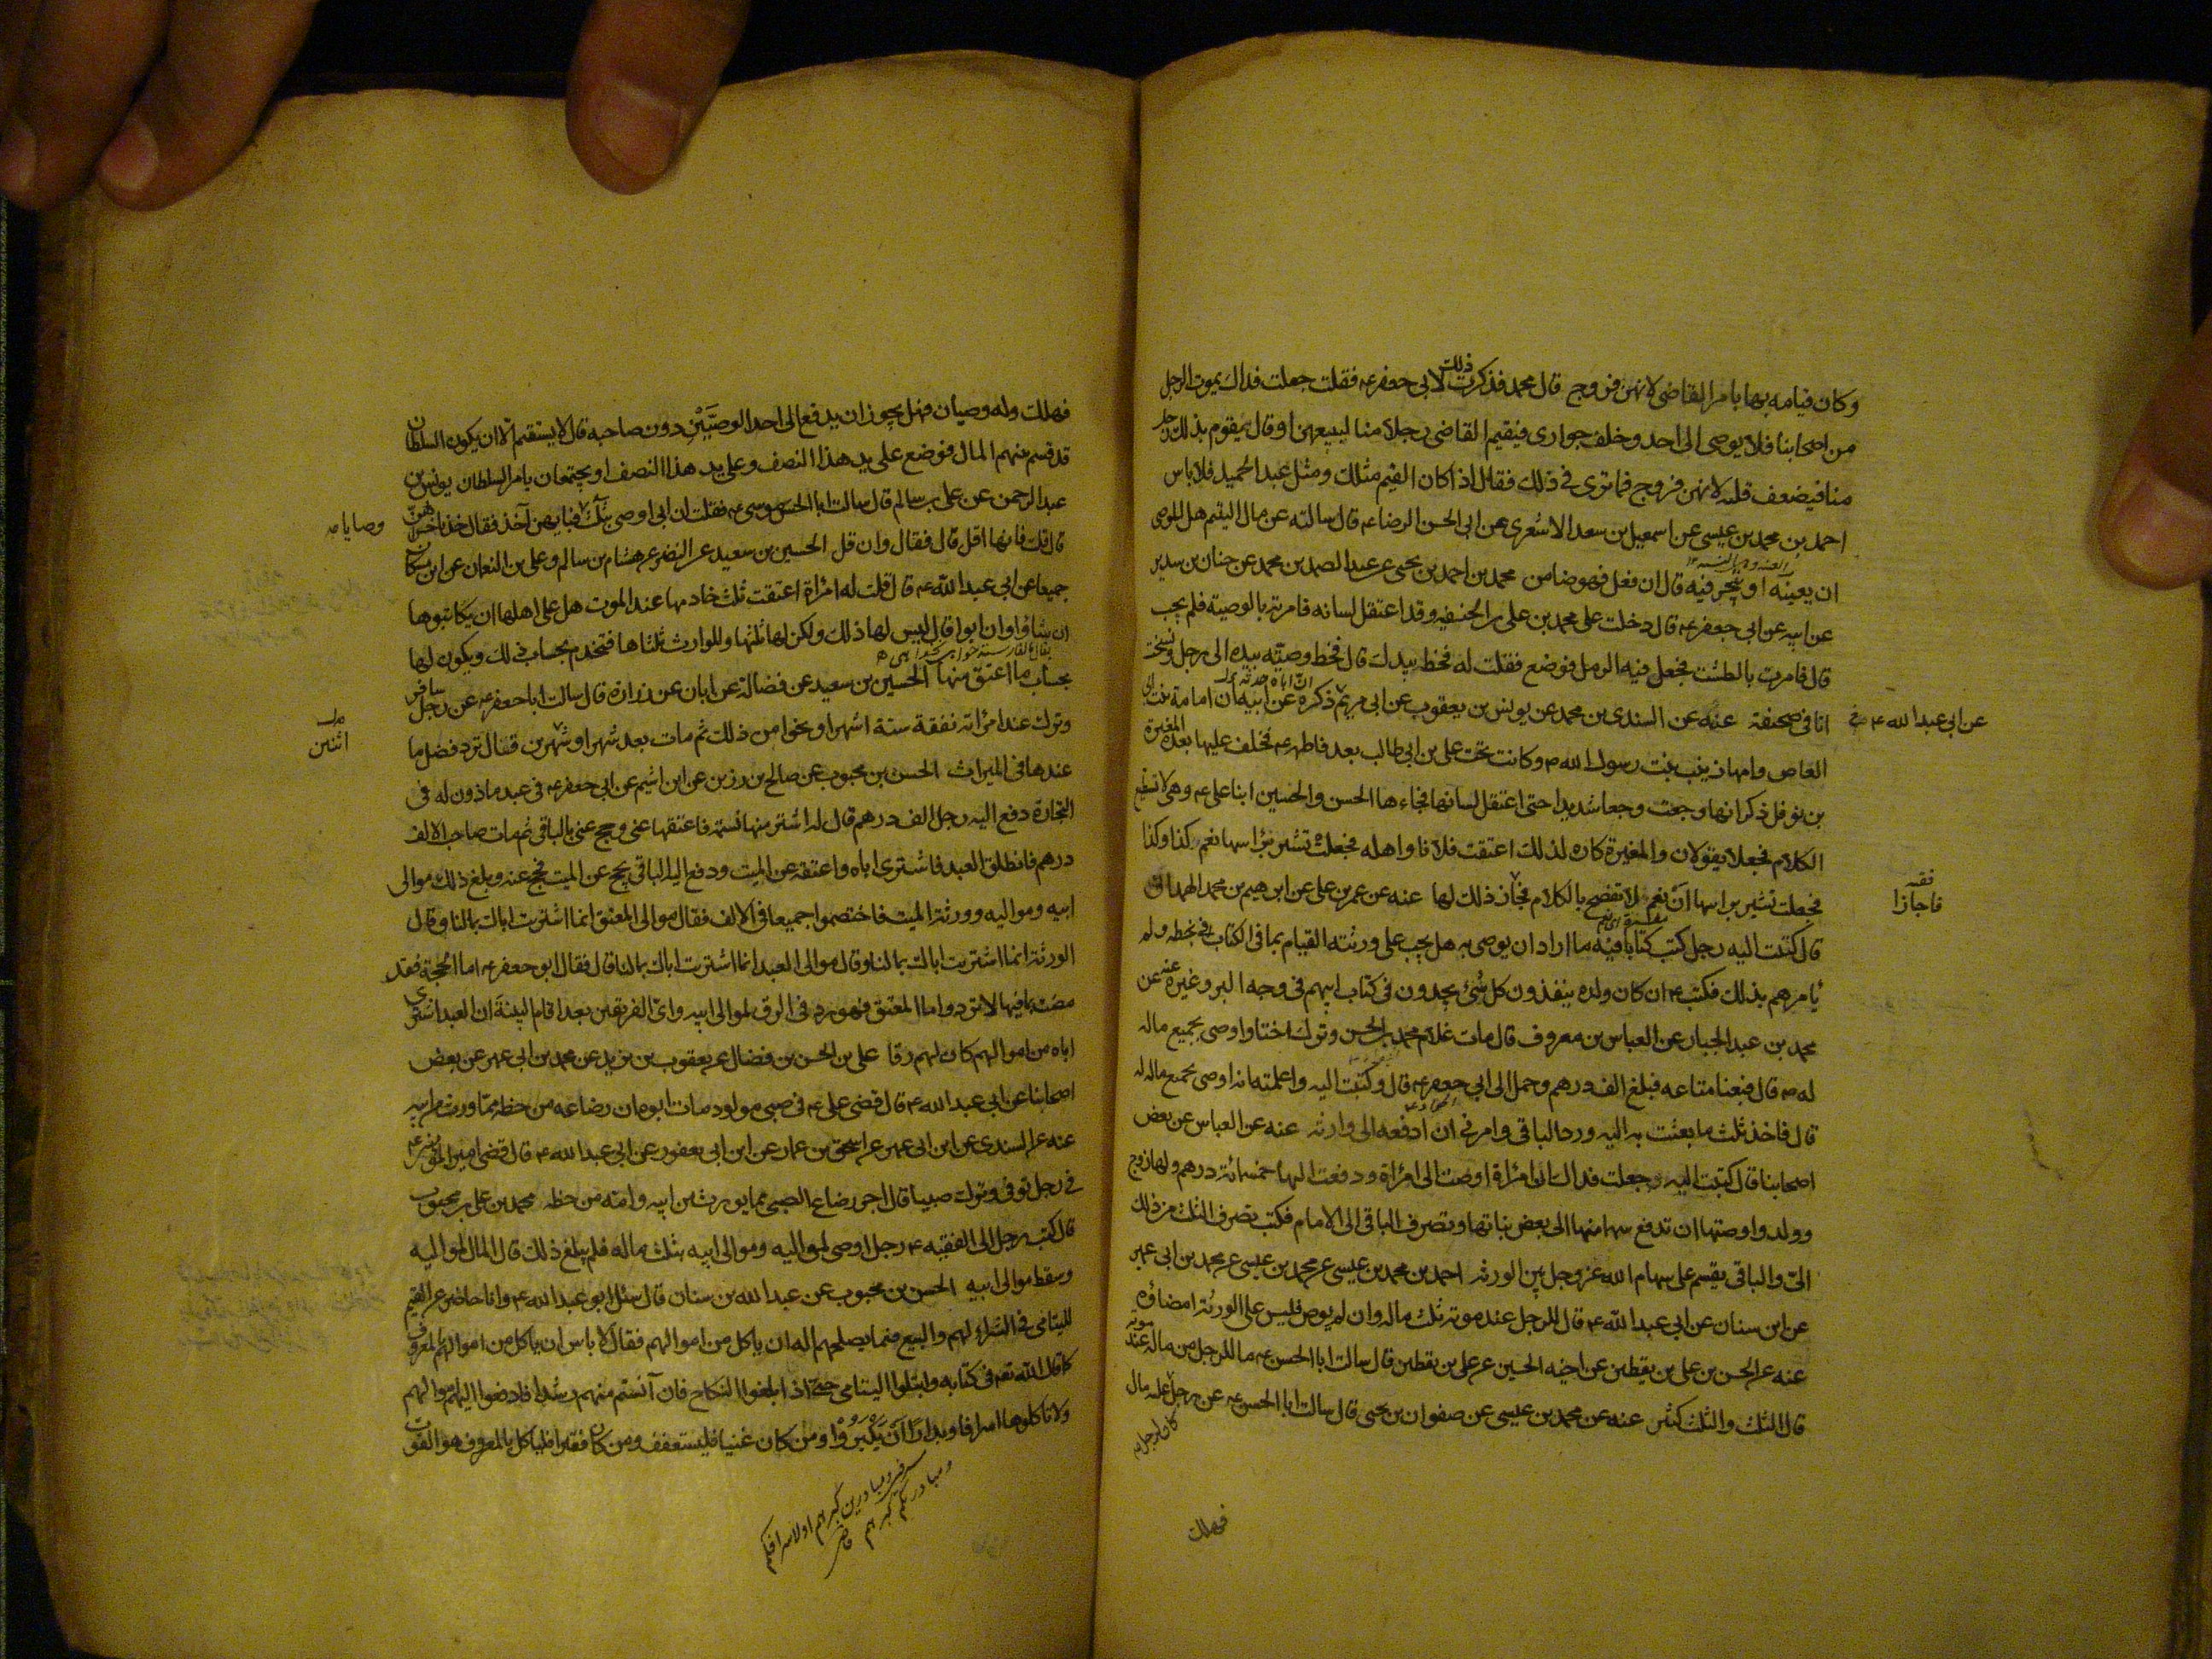 وكان قيامه بها بامر القاضي لانهن فروج قال محمد فذكرت ذلك لابي جعفر ع فقلت جعلت فداك يموت الرجل
من اصحابنا فلا يوصى الى احد وخلف جواري فيقيم القاضي رجلا منا ليبيعهن او قال يقوم بذلك رجل
منا فيضعف قلبه لانهن فروج فما ترى في ذلك فقال اذا كان القيم مثلك ومثل عبد الحميد فلا باس
احمد بن محمد بن عيسى عن اسمعيل بن سعد الاشعري عن ابي الحسن الرضا ع قال سالته عن مال اليتيم هل للوصي
ان يعينه او يتجر فيه قال ان فعل فهو ضامن محمد بن احمد بن يحيى عن عبد الصمد بن محمد عن حنان بن سدير
عن ابيه عن ابي جعفر ع قال دخلت على محمد بن علي بن الحنفيه وقد اعتقل لسانه فامرته بالوصية فلم يجب
قال فامرت بالطشت فجعل فيه الرمل فوضع فقلت له فخط بيدك قال فخط وصيته بيده الى رجل ونسخت
انا في صحيفة عنه عن السندي بن محمد عن يونس بن يعقوب عن ابي مريم ذكره عن ابيه ان امامة بنت ابي
ان اباه حدثه
عن ابي عبد الله ع
العاص وامها زينب بنت رسول الله ص وكانت تحت علي بن ابي طالب بعد فاطمه ع فخلف عليها بعده المغيرة
بن نوفل ذكر انها وجعت وجعا شديدا حتى اعتقل لسانها فجاءها الحسن والحسين ابنا علي ع وهي لا تستطيع
الكلام فجعلا يقولان والمغيرة كاره لذلك اعتقت فلانا واهله فجعلت تشير براسها نعم وكذا وكذا
فجعلت تشير براسها ان نعم لا تفصح بالكلام فجاز ذلك لها عنه عن عمر بن علي عن ابرهيم بن محمد الهمداني
فاجازا
قال كتبت اليه رجل كتب كتابا فيه ما اراد ان يوصى به هل يجب على ورثته القيام بما في الكتاب بخطه ولم
يامرهم بذلك فكتب ع ان كان ولده ينفذون كل شئ يجدون في كتاب ابيهم في وجه البر وغيره عنه عن
محمد بن عبد الجبار عن العباس بن معروف قال مات غلام محمد بن الحسن وترك اختا واوصى بجميع ماله
له ع قال فبعنا متاعه فبلغ الف درهم وحمل الى ابي جعفر ع قال وكتبت اليه واعلمته انه اوصى بجميع ماله له
قال فاخذ ثلث ما بعثت به اليه ورد الباقي وامرني ان ادفعه الى وارثه عنه عن العباس عن بعض
اصحابنا قال كتبت اليه جعلت فداك ان امراة اوصت الى امراة ودفعت اليها خمسمائة درهم ولها زوج
وولد واوصتها ان تدفع سهما منها الى بعض بناتها وتصرف الباقي الى الامام فكتب تصرف الثلث من ذلك
الي والباقي يقسم على سهام الله عز وجل بين الورثه احمد بن محمد بن عيسى عن محمد بن عيسى عن محمد بن ابي عمير
عن ابن سنان عن ابي عبد الله ع قال للرجل عند موته ثلث ماله وان لم يوص فليس على الورثة امضاؤه
عنه عن الحسن بن علي بن يقطين عن اخيه الحسين عن علي بن يقطين قال سالت ابا الحسن ع ما للرجل من ماله عند موته
قال الثلث والثلث كثير عنه عن محمد بن عيسى عن صفوان بن يحيى قال سالت ابا الحسن ع عن رجل عليه مال
فهلك
فهلك وله وصيان فهل يجوز ان يدفع الى احد الوصيين دون صاحبه قال لا يستقيم الا ان يكون السلطان
قد قسم بينهم المال فوضع على يد هذا النصف وعلى يد هذا النصف او يجتمعان بامر السلطان يونس بن
عبد الرحمن عن علي بن سالم قال سالت ابا الحسن موسى ع فقلت ان ابي اوصى بثلث فبايهن آخذ فقال خذ باخراهن
وصايا
قال قلت فانها اقل قال فقال وان قل الحسين بن سعيد عن النضر عن هشام بن سالم وعلي بن النعمان عن ابن مسكان
جميعا عن ابي عبد الله ع قال قلت له امراة اعتقت ثلث خادمها عند الموت هل على اهلها ان يكاتبوها
ان شاؤا وان ابوا قال ليس لها ذلك ولكن لها ثلثها وللوارث ثلثاها فتخدم بحساب ذلك ويكون لها
بحساب ما اعتق منها الحسين بن سعيد عن فضالة عن ابان عن زرارة قال سالت ابا جعفر ع عن رجل سافر
وترك عند امراته نفقة ستة اشهر او نحوا من ذلك ثم مات بعد شهر او شهرين فقال ترد فضل ما
اثنين
عندها في الميراث الحسن بن محبوب عن صالح بن رزين عن ابن اشيم عن ابي جعفر ع في عبد ماذون له في
التجارة دفع اليه رجل الف درهم قال له اشتر منها نسمة فاعتقها عني وحج عني بالباقي ثم مات صاحب الالف
درهم فانطلق العبد فاشترى اباه واعتقه عن الميت ودفع اليه الباقي يحج عن الميت فحج عنه وبلغ ذلك موالي
ابيه ومواليه وورثة الميت فاختصموا جميعا في الالف فقال موالي المعتق انما اشتريت اباك بمالنا وقال
الورثة انما اشتريت اباك بمالنا وقال موالي العبد انما اشتريت اباك بمالنا قال فقال ابو جعفر ع اما الحجة فقد
مضت بما فيها لا ترد واما المعتق فهو رد في الرق لموالي ابيه واي الفريقين بعد اقام البينة ان العبد اشترى
اباه من اموالهم كان لهم رقا علي بن الحسن بن فضال عن يعقوب بن يزيد عن محمد بن ابي عمير عن بعض
اصحابنا عن ابي عبد الله ع قال قضى علي ع في صبي مولود مات ابوه ان رضاعه من حظه مما ورث من ابيه
عنه عن السندي عن ابن ابي عمير عن اسحق بن عمار عن ابن ابي يعفور عن ابي عبد الله ع قال قضى امير المؤمنين ع
في رجل توفي وترك صبيا قال اجر رضاع الصبي مما يورث من ابيه وامه من حظه محمد بن علي بن محبوب
قال كتب رجل الى الفقيه ع رجل اوصى لمواليه وموالي ابيه بثلث ماله فلم يبلغ ذلك قال المال لمواليه
وسقط موالي ابيه الحسن بن محبوب عن عبد الله بن سنان قال سئل ابو عبد الله ع وانا حاضر عن القيم
لليتامى في الشراء لهم والبيع فيما يصلحهم اله ان ياكل من اموالهم فقال لا باس ان ياكل من اموالهم بالمعروف
كما قال الله تعه في كتابه وابتلوا اليتامى حتى اذا بلغوا النكاح فان آنستم منهم رشدا فادفعوا اليهم اموالهم
ولا تاكلوها اسرافا وبدارا ان يكبروا ومن كان غنيا فليستعفف ومن كان فقيرا فلياكل بالمعروف هو القوت